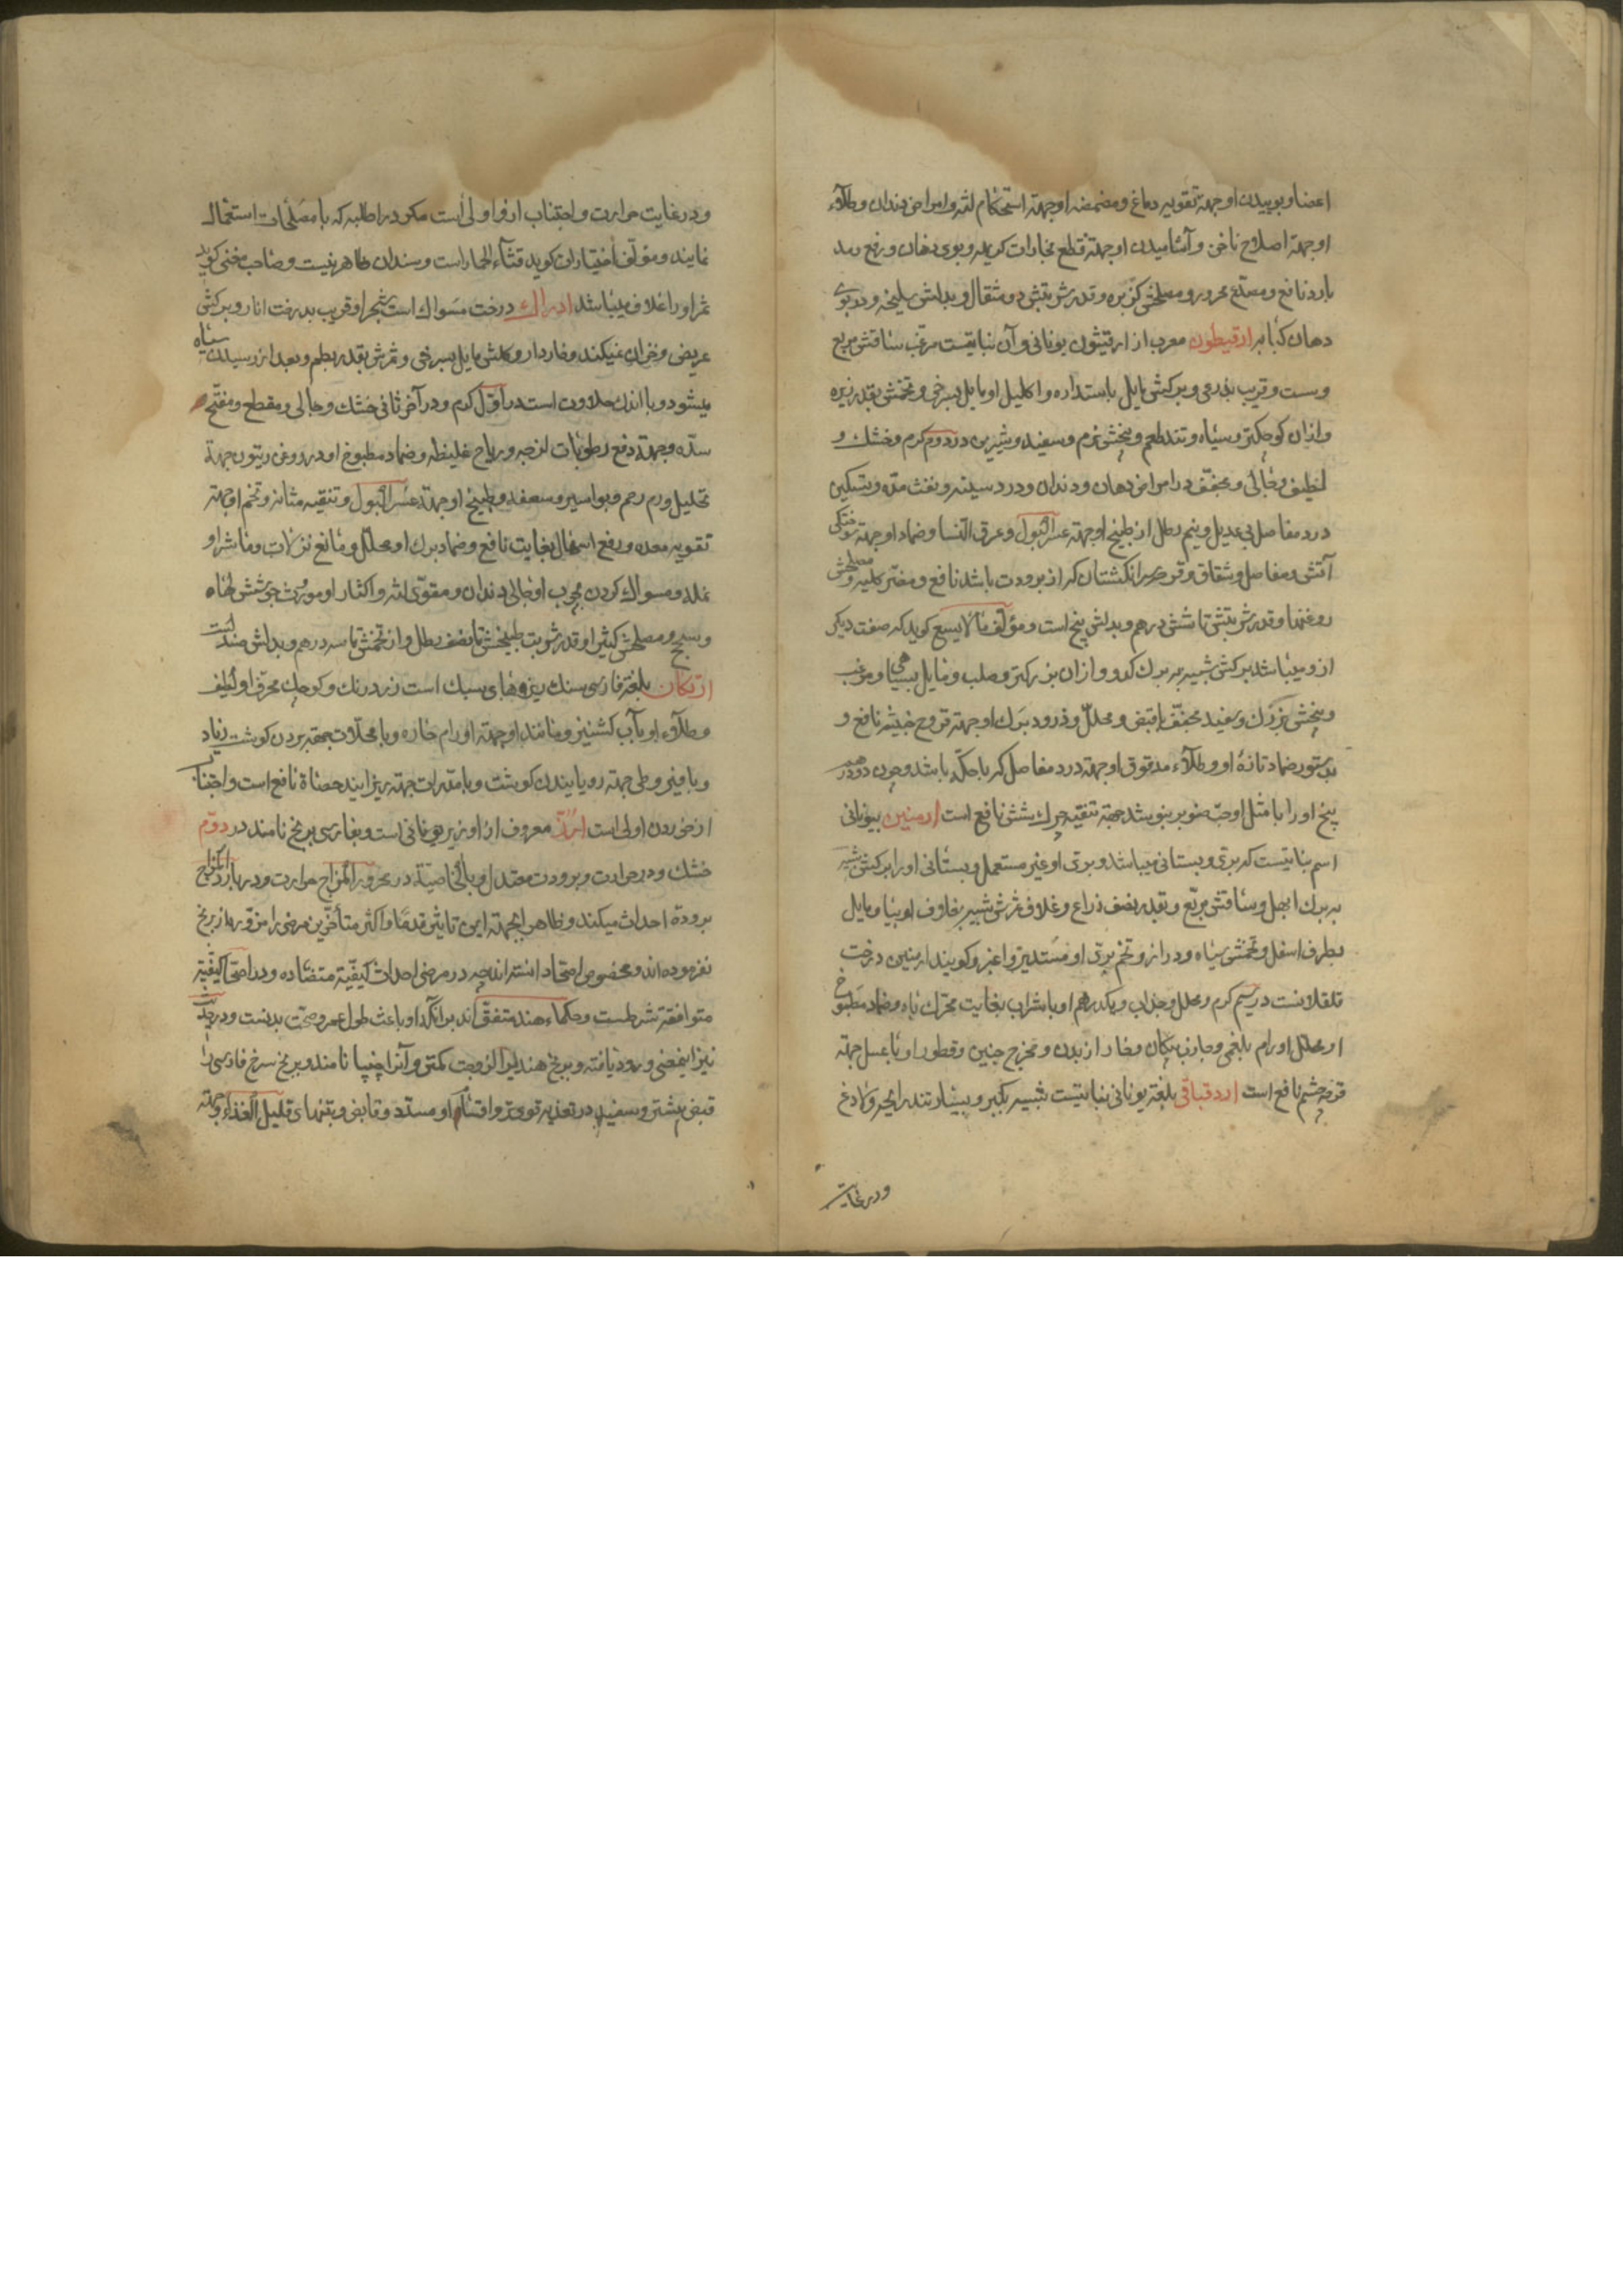 اعضا و بوییدن او جهة تقویه دماغ و مضمضه او جهة استحکام لثه و امراض دندان و طلاء
او جهة اصلاح ناخن و آشامیدن او جهة قطع بخارات کریهه و بوی دهان و رفع رمد
بارد نافع و مصدع محرور و مصلحش کزبره و قدر شربتش دو مثقال و بدلش سلیخه و در بوی
دهان کبابه ارقیطون معرب از ارقیثون یونانی و آن نباتیست مزغب ساقش مربع
و سست و قریب بذرعی و برکش مایل باستداره و اکلیل او مایل بسرخی و تخمش بقدر زیره
و از ان کوچکتر و سیاه و تند طعم و بیخش نرم و سفید و شیرین در دوم کرم و خشک و
لطیف و جالی و مجفف و در امراض دهان و دندان و درد سینه و نفث مده و تسکین
درد مفاصل بی عدیل و نیم رطل از طبیخ او جهة عسر البول و عرق النسا و ضماد او جهة سوختکی
آتش و مفاصل و شقاق و قرحه سر انکشتان که از برودت باشد نافع و مضر کلیه و مصلحش
روغنها و قدر شربتش تا شش درهم و بدلش بیخ است و مؤلف مالایسع کوید که صنف دیکر
ازو میباشد برکش شبیه به برک کدو و از ان بزرکتر و صلب و مایل بسیاهی و مزغب
و بیخش بزرک و سفید مجفف با قبض و محلل و ذرور برک او جهة قروح خبیثه نافع و
بدستور ضماد تازه او و طلاء مدقوق او جهة درد مفاصل که با حکه باشد و چون دو درهم
بیخ او را با مثل او حب صنوبر بنوشند جهة تنقیه چرک شش نافع است ارمنین بیونانی
اسم نباتیست که بری و بستانی میباشد و بری او غیر مستعمل و بستانی او را برکش شبیه
به برک ابهل و ساقش مربع و بقدر نصف ذراع و غلاف ثمرش شبیه بغلاف لوبیا و مایل
بطرف اسفل و تخمش سیاه و دراز و تخم بری او مستدیر و اغبر و کویند ارمنین درخت
قلقلانست در سیم کرم و محلل و جذاب و یکدرهم او با شراب بغایت محرک باه و ضماد مطبوخ
او محلل اورام بلغمی و جاذب پیکان و خار از بدن و مخرج جنین و قطور او با عسل جهة
قرحه چشم نافع است اردقیاقی بلغة یونانی نباتیست شبیه بکبر و بسیار تند رایحه و لاذع
و در غایت
و در غایت حرارت و اجتناب ازو اولی است مکر در اطلیه که با مصلحات استعمال
نمایند و مؤلف اختیارات کوید قثاء الحمار است و سندان ظاهر نیست و صاحب مغنی کوید
ثمر او را غلاف میباشد اراک درخت مسواک است شجر او قریب بدرخت انار و برکش
عریض و خزان نمیکند و خاردار و کلش مایل بسرخی و ثمرش بقدر بطم و بعد از رسیدن سیاه
میشود و با اندک حلاوت است در اول کرم و در آخر ثانی خشک و جالی و مقطع و مفتح
سده و جهة دفع رطوبات لزجه و ریاح غلیظه و ضماد مطبوخ او در روغن زیتون جهة
تحلیل ورم رحم و بواسیر و سعفه و طبیخ او جهة عسر البول و تنقیه مثانه و تخم او جهة
تقویه معده و رفع اسهال بغایت نافع و ضماد برک او محلل و مانع نزلات و ماشرا و
نمله و مسواک کردن بچوب او جالی دندان و مقوی لثه و اکثار او مورث جوشش لهاه
و سحج و مصلحش کثیرا و قدر شربت طبیخش تا نصف رطل و از تخمش تا سه درهم و بدلش صندلست
ارتکان بلغة فارسی سنک ریزهای سبک است زرد رنک و کوچک محرق او لطیف
و طلاء او با آب کشنیز و مانند او جهة اورام حاره و با محللات جهة بردن کوشت زیاد
و با قیروطی جهة رویانیدن کوشت و با مدرات جهة ریزانیدن حصاة نافع است و اجتناب
از خوردن اولی است ارز معروف از اوریز یونانی است و بفارسی برنج نامند در دوم
خشک و در حرارت و برودت معتدل و بالخاصیة در محرور المزاج حرارت و در بارد المزاج
برودة احداث میکند و ظاهرا بجهة این تاثیر قدما و اکثر متأخرین مرضی را مزوره از برنج
نفرموده اند و مخصوص اصحا دانسته اند چه در مرضی احداث کیفیة متضاده و در اصحا کیفیة
متوافقه شرطست و حکماء هند متفق اند بر انکه او باعث طول عمر و صحت بدنست و در حدیث
نیز این معنی ورود یافته و برنج هندی را لزوجت کمتر و آنرا چنپا نامند و برنج سرخ فارسی را
قبض بیشتر و سفید در تغذیه قوی تر و اقسام او مسدد و قابض و بتنهای قلیل الغذاء و جهة